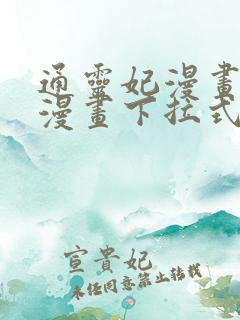 通靈妃漫畫
漫畫下拉式
宣貴妃
未经同意禁止转载